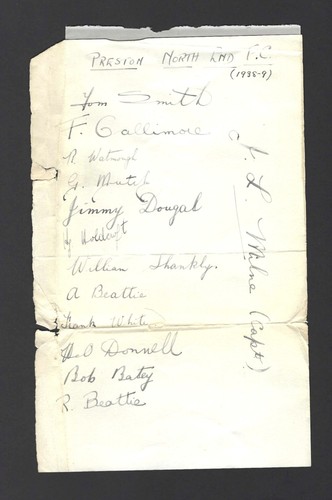 PRESTON NORTH END F.C.
(1938-9)
Tom Smith
F. Gallimore
R Watmough
G. Mutch
Jimmy Dougal
H Holdcroft
William Shankly.
A Beattie
Frank White
H O Donnell
Bob Batey
R. Beattie
J. L. Milne (Capt)